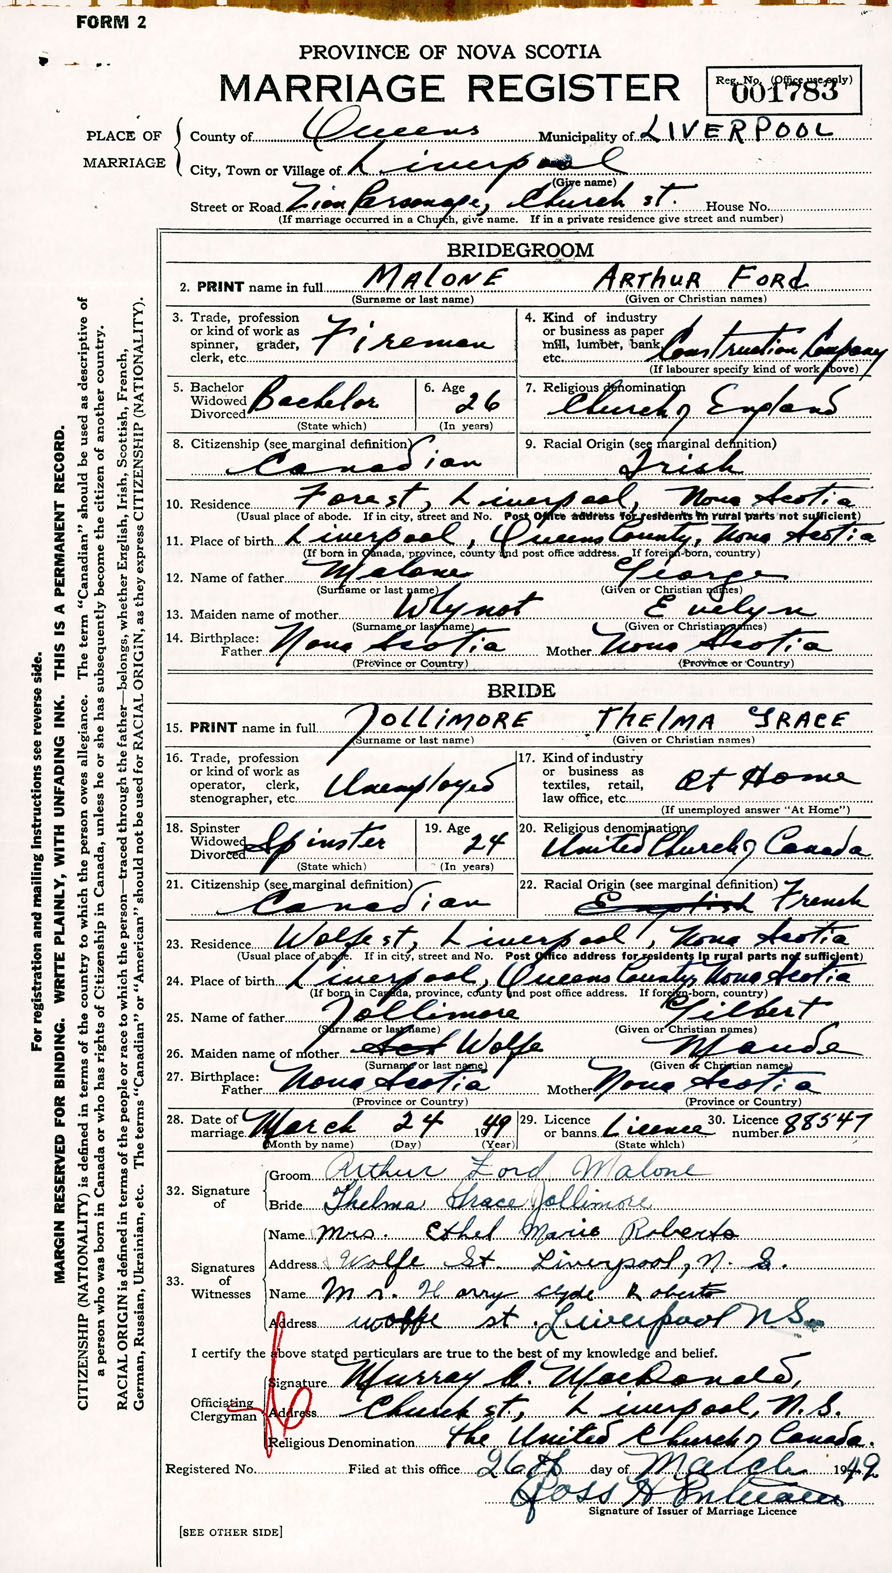 FORM 2
PROVINCE OF NOVA SCOTIA
MARRIAGE REGISTER
Reg. No. (Office use only)
001783
PLACE OF MARRIAGE
County of Queens Municipality of LIVERPOOL
City, Town or Village of Liverpool
(Give name)
Street or Road Zion Parsonage, Church st. House No.
(If marriage occurred in a Church, give name. If in a private residence give street and number)
BRIDEGROOM
2. PRINT name in full MALONE ARTHUR FORD
(Surname or last name) (Given or Christian names)
3. Trade, profession or kind of work as spinner, grader, clerk, etc. Fireman
4. Kind of industry or business as paper mill, lumber, bank, etc. Construction Company
(If labourer specify kind of work above)
5. Bachelor Widowed Divorced Bachelor
(State which)
6. Age 26
(In years)
7. Religious denomination Church of England
8. Citizenship (see marginal definition) Canadian
9. Racial Origin (see marginal definition) Irish
10. Residence Forest, Liverpool, Nova Scotia
(Usual place of abode. If in city, street and No. Post Office address for residents in rural parts not sufficient)
11. Place of birth Liverpool, Queens County, Nova Scotia
(If born in Canada, province, county and post office address. If foreign-born, country)
12. Name of father Malone George
(Surname or last name) (Given or Christian names)
13. Maiden name of mother Whynot Evelyn
(Surname or last name) (Given or Christian names)
14. Birthplace: Father Nova Scotia Mother Nova Scotia
(Province or Country) (Province or Country)
BRIDE
15. PRINT name in full JOLLIMORE THELMA GRACE
(Surname or last name) (Given or Christian names)
16. Trade, profession or kind of work as operator, clerk, stenographer, etc. Unemployed
17. Kind of industry or business as textiles, retail, law office, etc. At Home
(If unemployed answer "At Home")
18. Spinster Widowed Divorced Spinster
(State which)
19. Age 24
(In years)
20. Religious denomination United Church of Canada
21. Citizenship (see marginal definition) Canadian
22. Racial Origin (see marginal definition) English French
23. Residence Wolfe st, Liverpool, Nova Scotia
(Usual place of abode. If in city, street and No. Post Office address for residents in rural parts not sufficient)
24. Place of birth Liverpool, Queens County, Nova Scotia
(If born in Canada, province, county and post office address. If foreign-born, country)
25. Name of father Jollimore Gilbert
(Surname or last name) (Given or Christian names)
26. Maiden name of mother Wolfe Maude
(Surname or last name) (Given or Christian names)
27. Birthplace: Father Nova Scotia Mother Nova Scotia
(Province or Country) (Province or Country)
28. Date of marriage March 24 1949
(Month by name) (Day) (Year)
29. Licence or banns Licence
(State which)
30. Licence number 88547
32. Signature of
Groom Arthur Ford Malone
Bride Thelma Grace Jollimore
33. Signatures of Witnesses
Name Mrs. Ethel Marie Roberts
Address Wolfe St. Liverpool, N. S.
Name Mr. Harry Clyde Roberts
Address wolfe st. Liverpool N.S.
I certify the above stated particulars are true to the best of my knowledge and belief.
Officiating Clergyman
Signature Murray A. MacDonald,
Address Church st., Liverpool, N.S.
Religious Denomination The United Church of Canada.
Registered No. Filed at this office 26th day of March 1949
Ross H
Signature of Issuer of Marriage Licence
[SEE OTHER SIDE]
For registration and mailing instructions see reverse side.
MARGIN RESERVED FOR BINDING. WRITE PLAINLY, WITH UNFADING INK. THIS IS A PERMANENT RECORD.
CITIZENSHIP (NATIONALITY) is defined in terms of the country to which the person owes allegiance. The term "Canadian" should be used as descriptive of
a person who was born in Canada or who has rights of Citizenship in Canada, unless he or she has subsequently become the citizen of another country.
RACIAL ORIGIN is defined in terms of the people or race to which the person—traced through the father—belongs, whether English, Irish, Scottish, French,
German, Russian, Ukrainian, etc. The terms "Canadian" or "American" should not be used for RACIAL ORIGIN, as they express CITIZENSHIP (NATIONALITY).